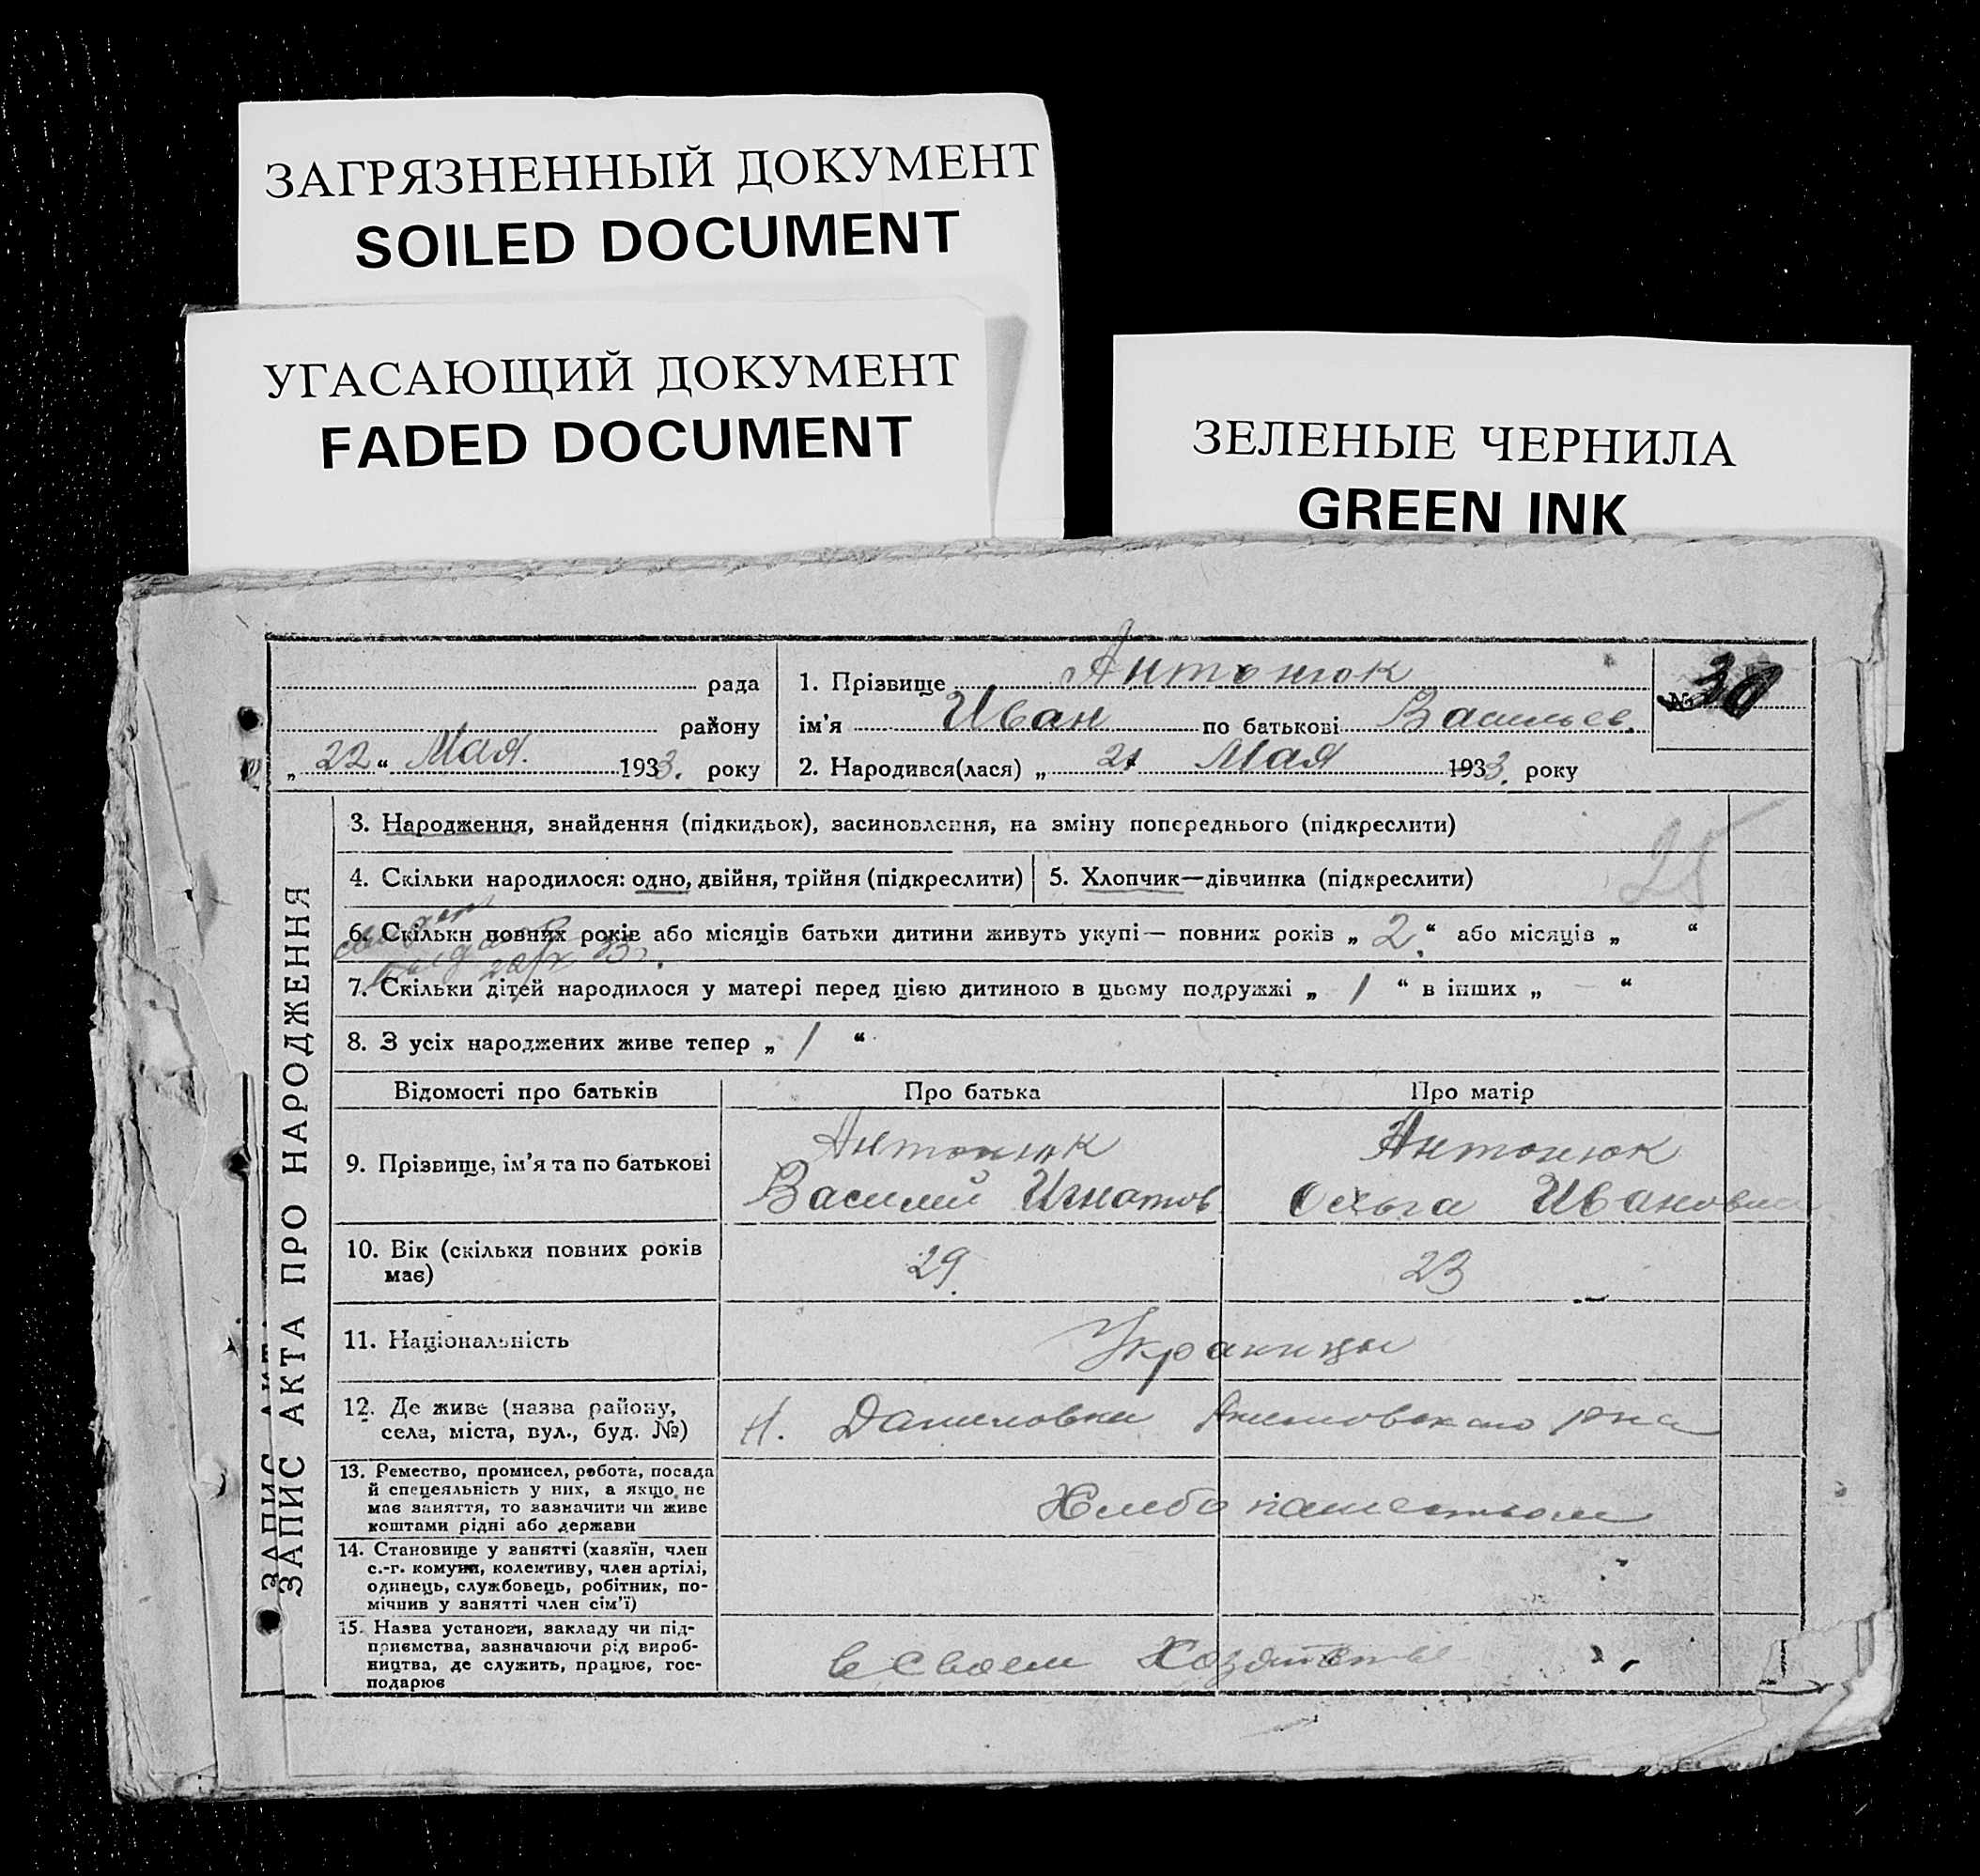 ЗАГРЯЗНЕННЫЙ ДОКУМЕНТ
SOILED DOCUMENT
УГАСАЮЩИЙ ДОКУМЕНТ
FADED DOCUMENT
ЗЕЛЕНЫЕ ЧЕРНИЛА
GREEN INK
рада
району
„ 22 “ Мая. 1933. року
1. Прізвище Антонюк
ім’я Иван по батькові Васильев.
2. Народився(лася) „ 21 Мая 1933. року
№ 30
ЗАПИС АКТА ПРО НАРОДЖЕННЯ
3. Народження, знайдення (підкидьок), засиновлення, на зміну попереднього (підкреслити)
25
4. Скільки народилося: одно, двійня, трійня (підкреслити)
5. Хлопчик—дівчинка (підкреслити)
6. Скільки повних років або місяців батьки дитини живуть укупі— повних років „ 2. “ або місяців „ “
7. Скільки дітей народилося у матері перед цією дитиною в цьому подружжі „ 1 “ в інших „ — “
8. З усіх народжених живе тепер „ 1 “
Відомості про батьків
Про батька
Про матір
9. Прізвище, ім’я та по батькові
Антонюк
Василий Игнатов
Антонюк
Ольга Ивановна
10. Вік (скільки повних років
має)
29.
23
11. Національність
Украинцы
12. Де живе (назва району,
села, міста, вул., буд. №)
Н. Даниловки Акимовского рна
13. Ремество, промисел, робота, посада
й спецеяльність у них, а якщо не
має заняття, то зазначити чи живе
коштами рідні або держави
Хлебопашеством
14. Становище у занятті (хазяїн, член
с.-г. комуни, колективу, член артілі,
одинець, службовець, робітник, по-
мічник у занятті член сім’ї)
15. Назва установи, закладу чи під-
приємства, зазначаючи рід вироб-
ництва, де служить, працює, гос-
подарює
в своем Хозяйстве